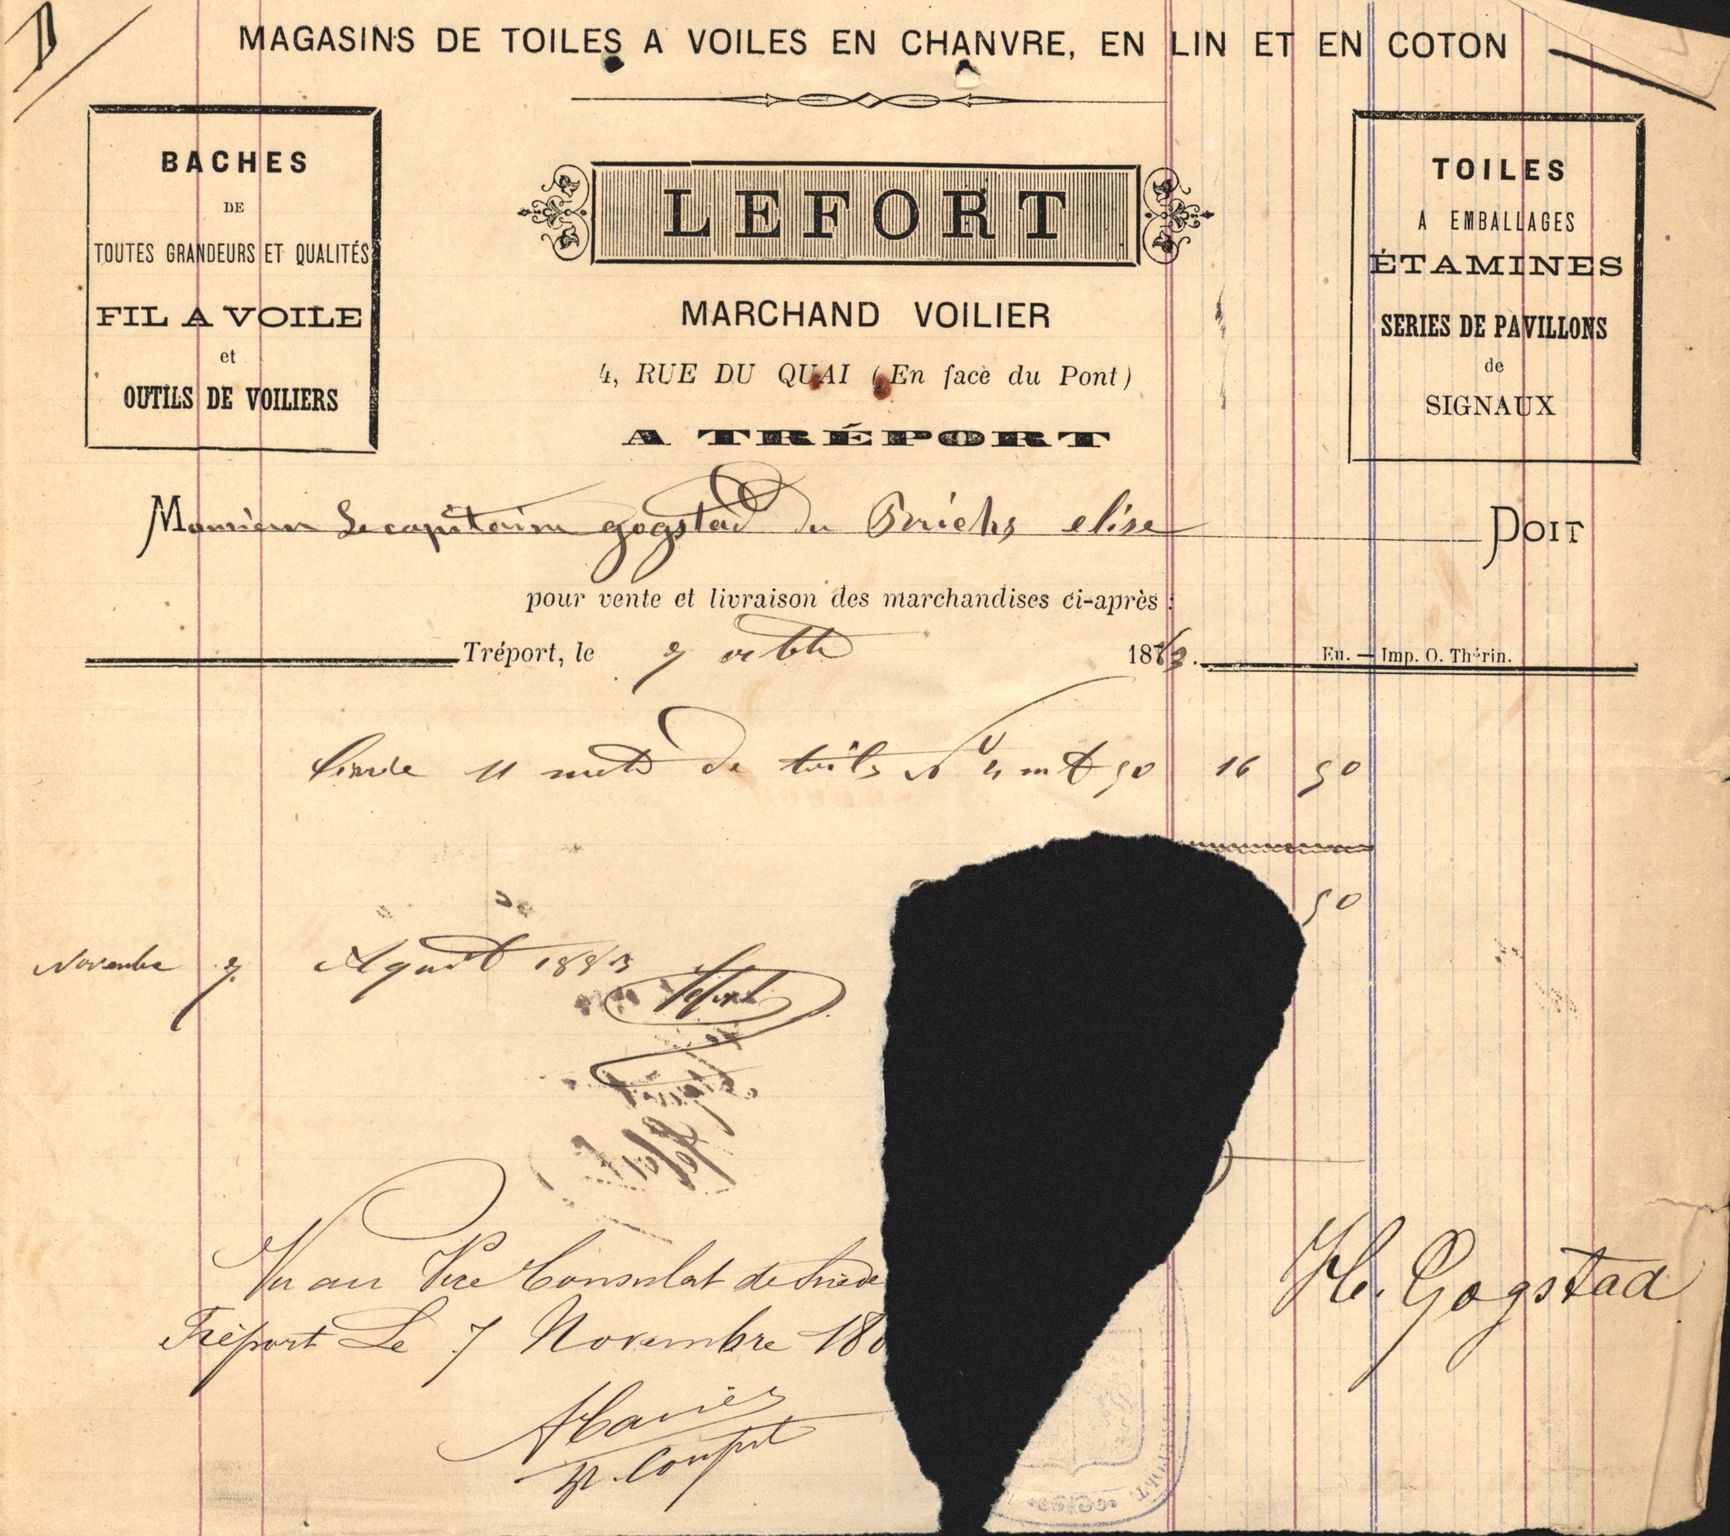 MAGASINS DE TOILES A VOILES EN CHANVRE, EN LIN ET EN COTON
BACHES
DE
TOUTES GRANDEURS ET QUALITÉS
FIL A VOILE
et
OUTILS DE VOILIERS
LEFORT
MARCHAND VOILIER
4, RUE DU QUAI (En face du Pont)
A TRÉPORT
TOILES
A EMBALLAGES
ÉTAMINES
SERIES DE PAVILLONS
de
SIGNAUX
Monsieur Le capitaine gogstad du elise DOIT
pour vente et livraison des marchandises ci-après :
Tréport, le 7 188
Eu. — Imp. O. Thérin.
11 de toile N° 50 16 50
50
Novembre 7 Aquit 1883
Lefort
Vu au Vice Consulat de Suède
Tréport Le 7 Novembre 188
H. Gogstad